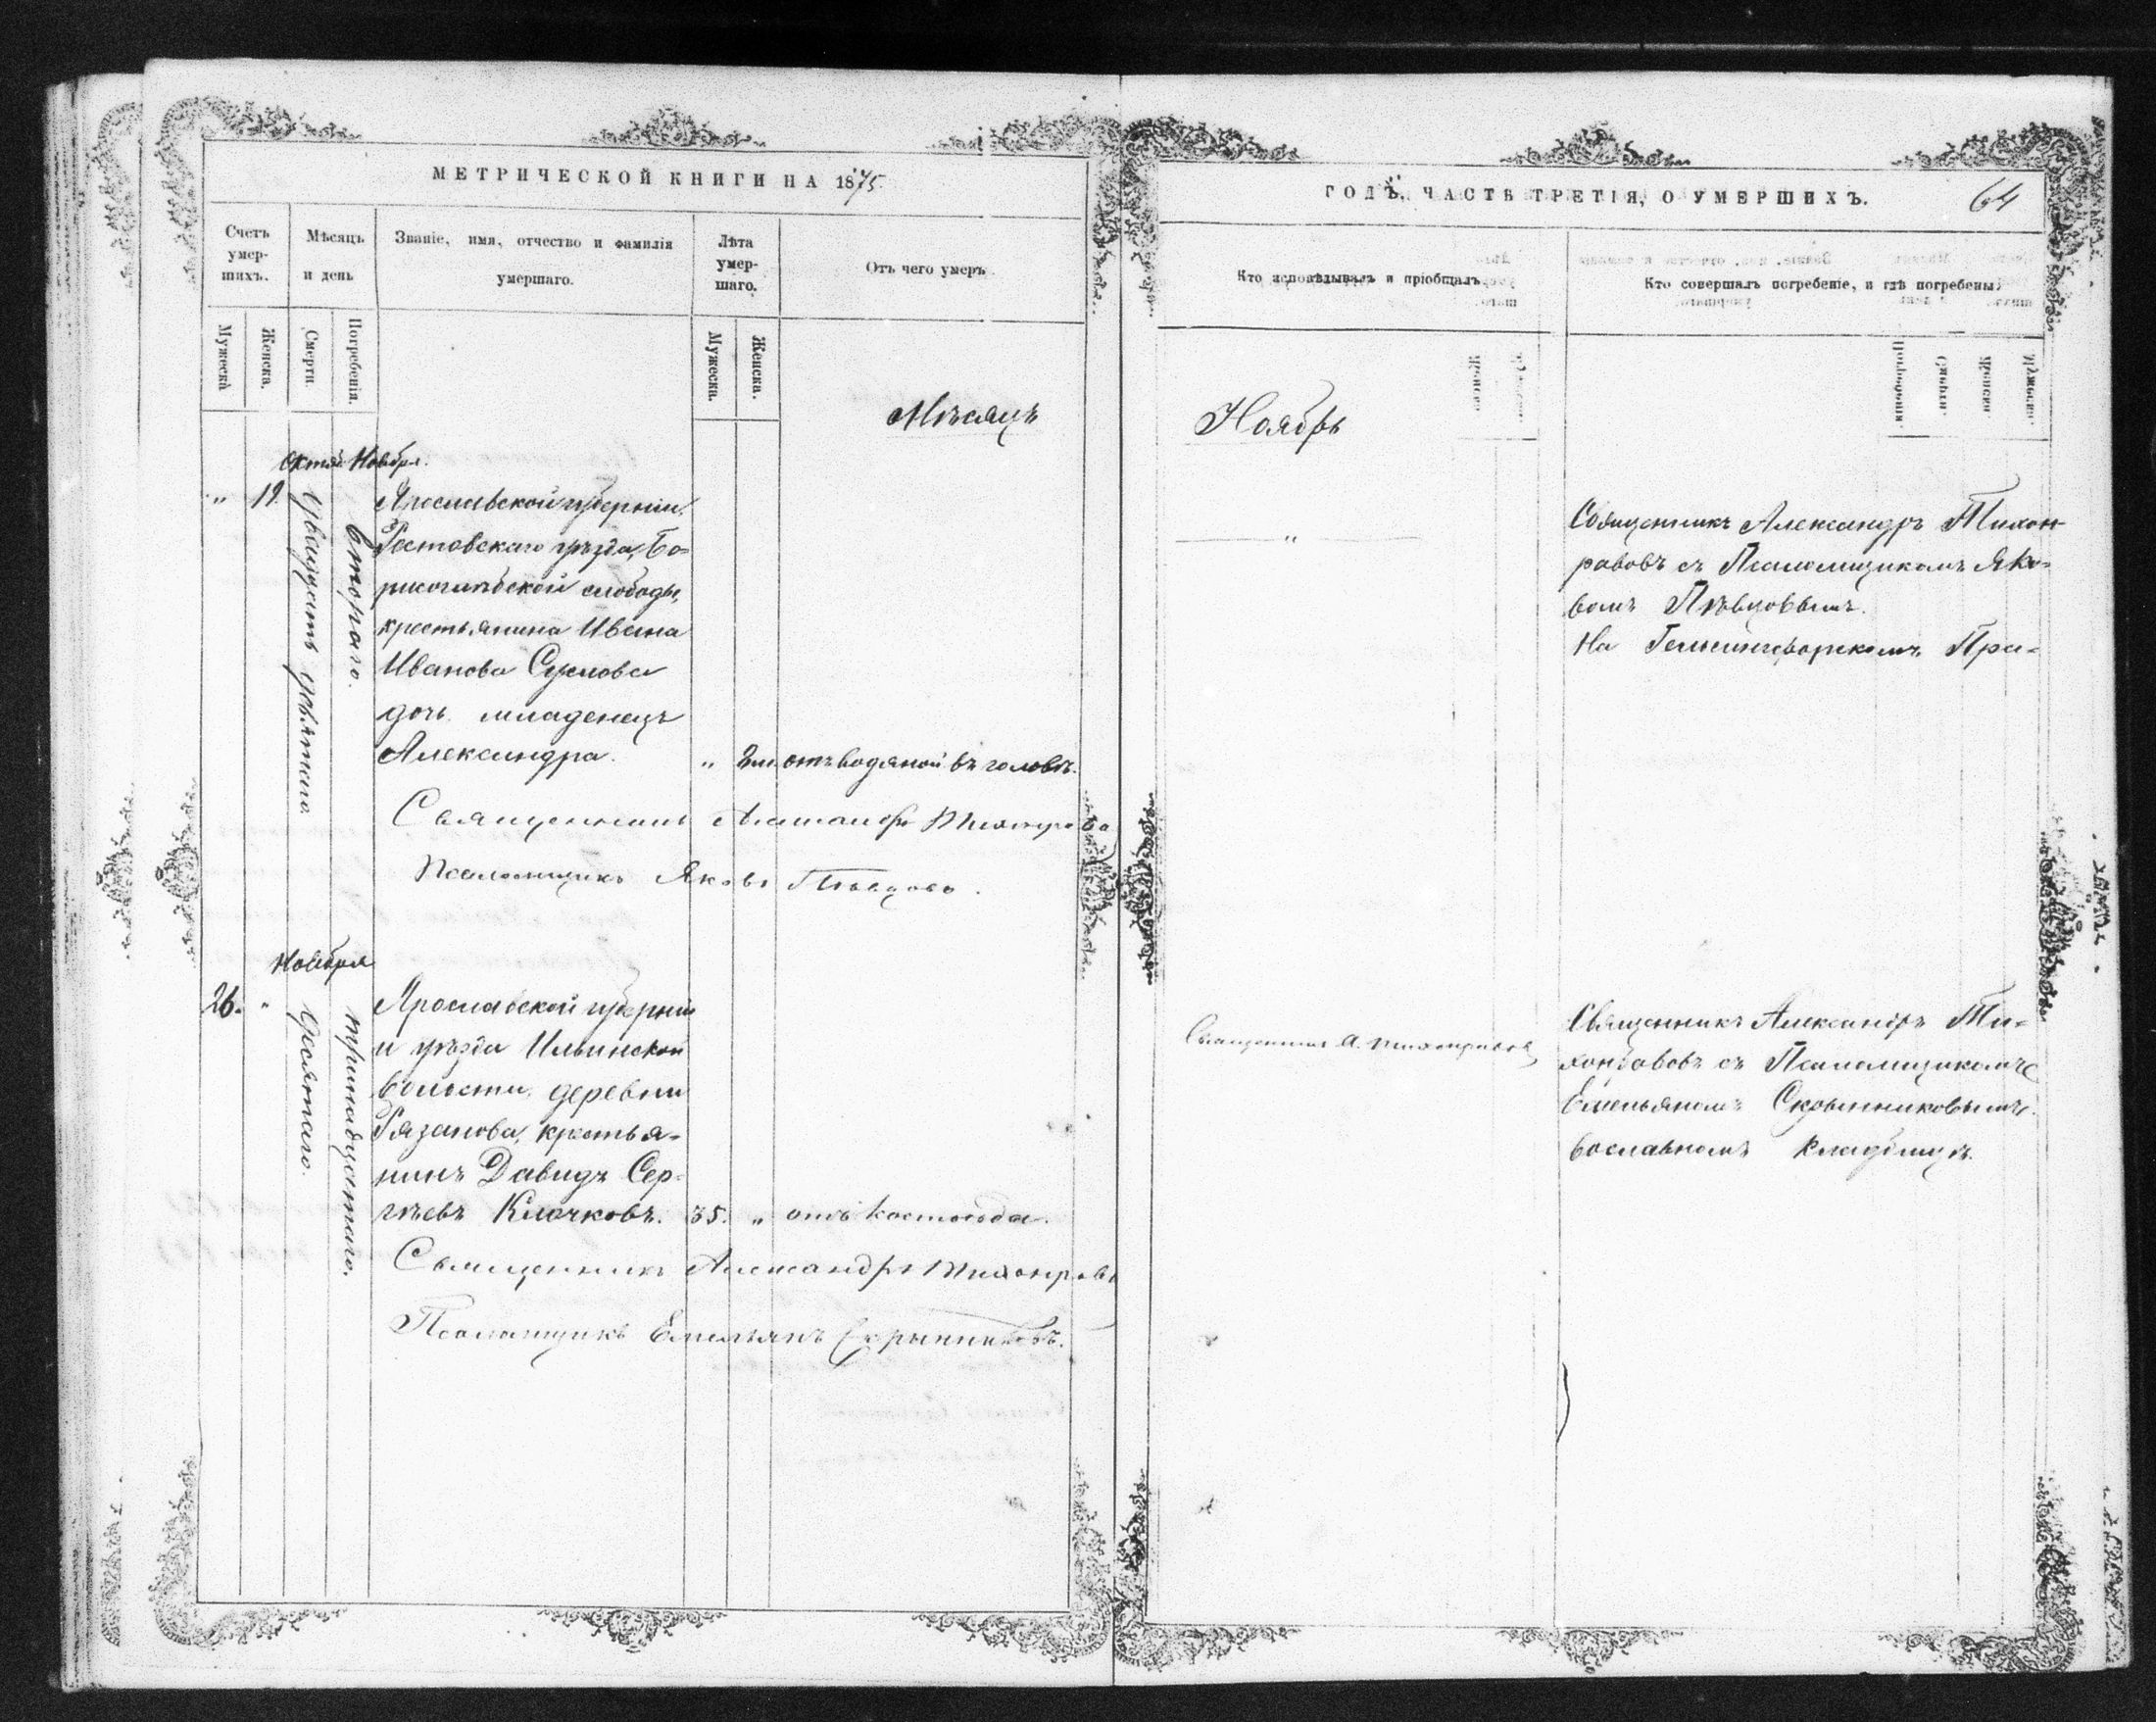 МЕТРИЧЕСКОЙ КНИГИ НА 1875
Счетъ умер-шихъ.
Мѣсяцъ и день
Званіе, имя, отчество и фамилія умершаго.
Лѣта умер-шаго.
Отъ чего умеръ
Мужеска
Женска.
Смерти.
Погребенія.
Мужеска.
Женска.
Мѣсяцъ
Октяб Ноября.
" 19.
Двадцать девятаго.
Втораго.
Ярославской губерніи,
Ростовскаго уѣзда, Бо=
рисоглѣбской слободы,
крестьянина Ивана
Иванова Суслова
дочь младенецъ
Александра.
" 3 м. отъ водяной въ головѣ.
Священникъ Александръ Тихонравовъ
Псаломщикъ Яковъ Пѣвцовъ.
Ноября
26. "
Десятаго.
тринадцатаго.
Ярославской губерніи
и уѣзда Ильинской
волости, деревни
Рязанова, крестья=
нинъ Давидъ Сер=
гѣевъ Клочковъ. 35. " отъ костоѣда.
Священникъ Александръ Тихонравовъ
Псаломщикъ Емельянъ Скрынниковъ.
ГОДЪ, ЧАСТЬ ТРЕТІЯ, О УМЕРШИХЪ.
64
Кто исповѣдывалъ и пріобщалъ.
Кто совершалъ погребеніе, и гдѣ погребены.
Ноябрь
"
Священникъ Александръ Тихон-
равовъ съ Псаломщикомъ Яко=
вомъ Пѣвцовымъ.
На Гельсингфорскомъ Пра=
Священникъ А. Тихонравовъ
Священникъ Александръ Ти=
хонравовъ съ Псаломщикомъ
Емельяномъ Скрынниковымъ.
вославномъ кладбищѣ.